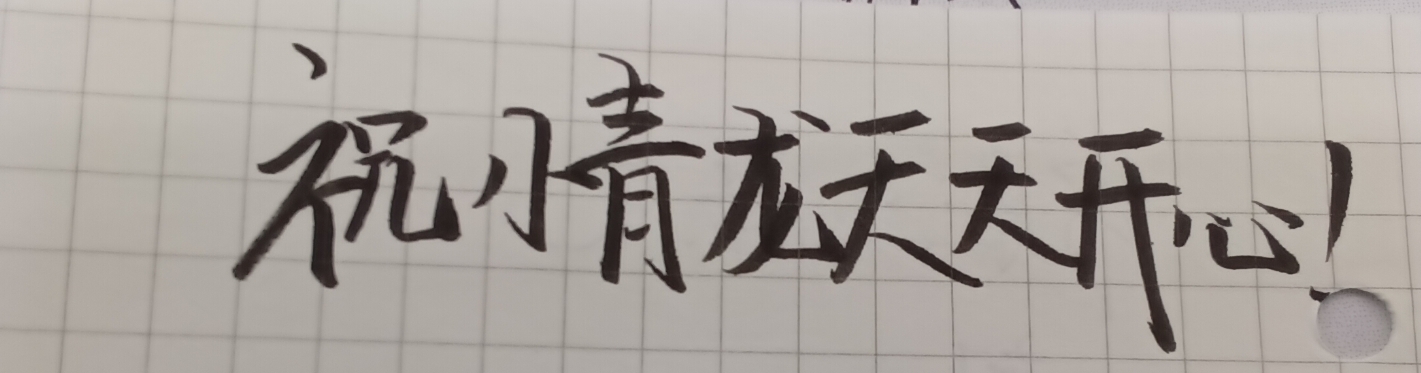 祝小青龙天天开心!